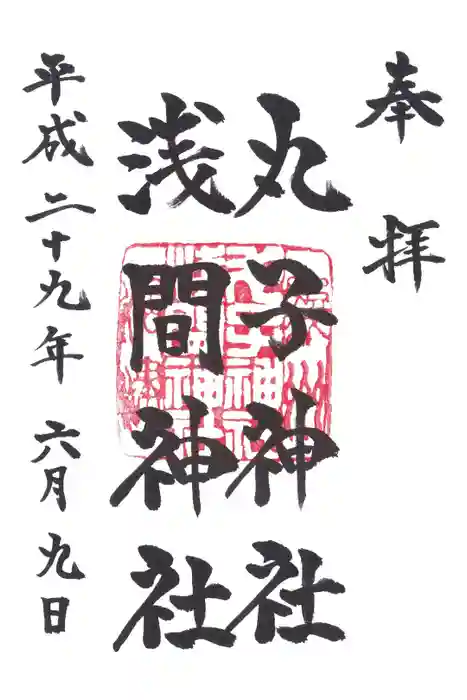 奉拝
丸子神社
浅間神社
平成二十九年六月九日